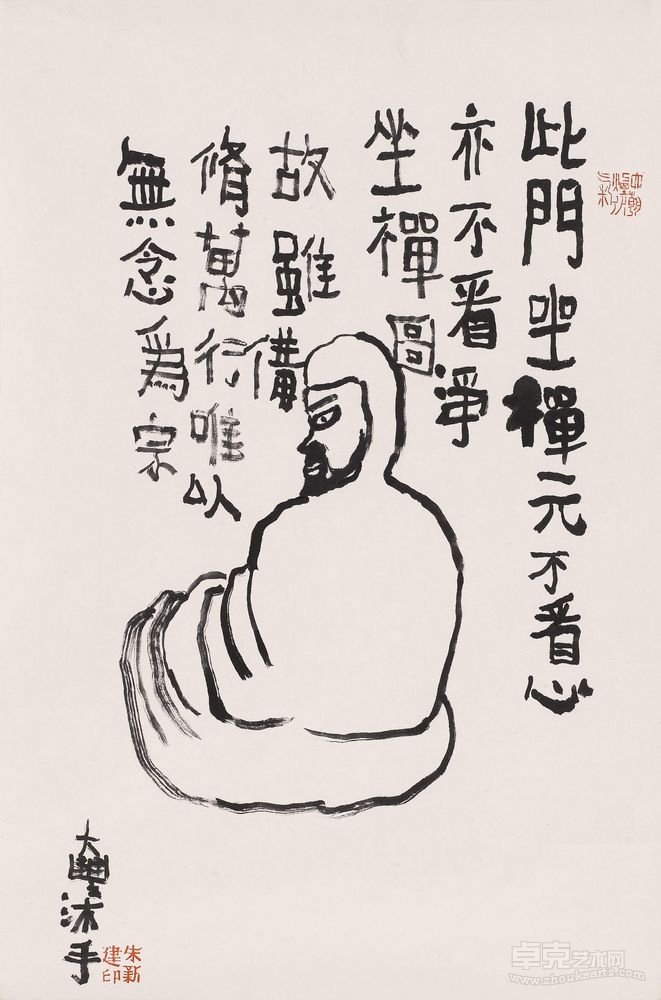 此門坐禪元不看心
亦不看淨
坐禪圖
故雖備
脩萬行唯以
無念為宗
大豐沐手
朱新建印
卓克艺术网
www.zhoukearts.com